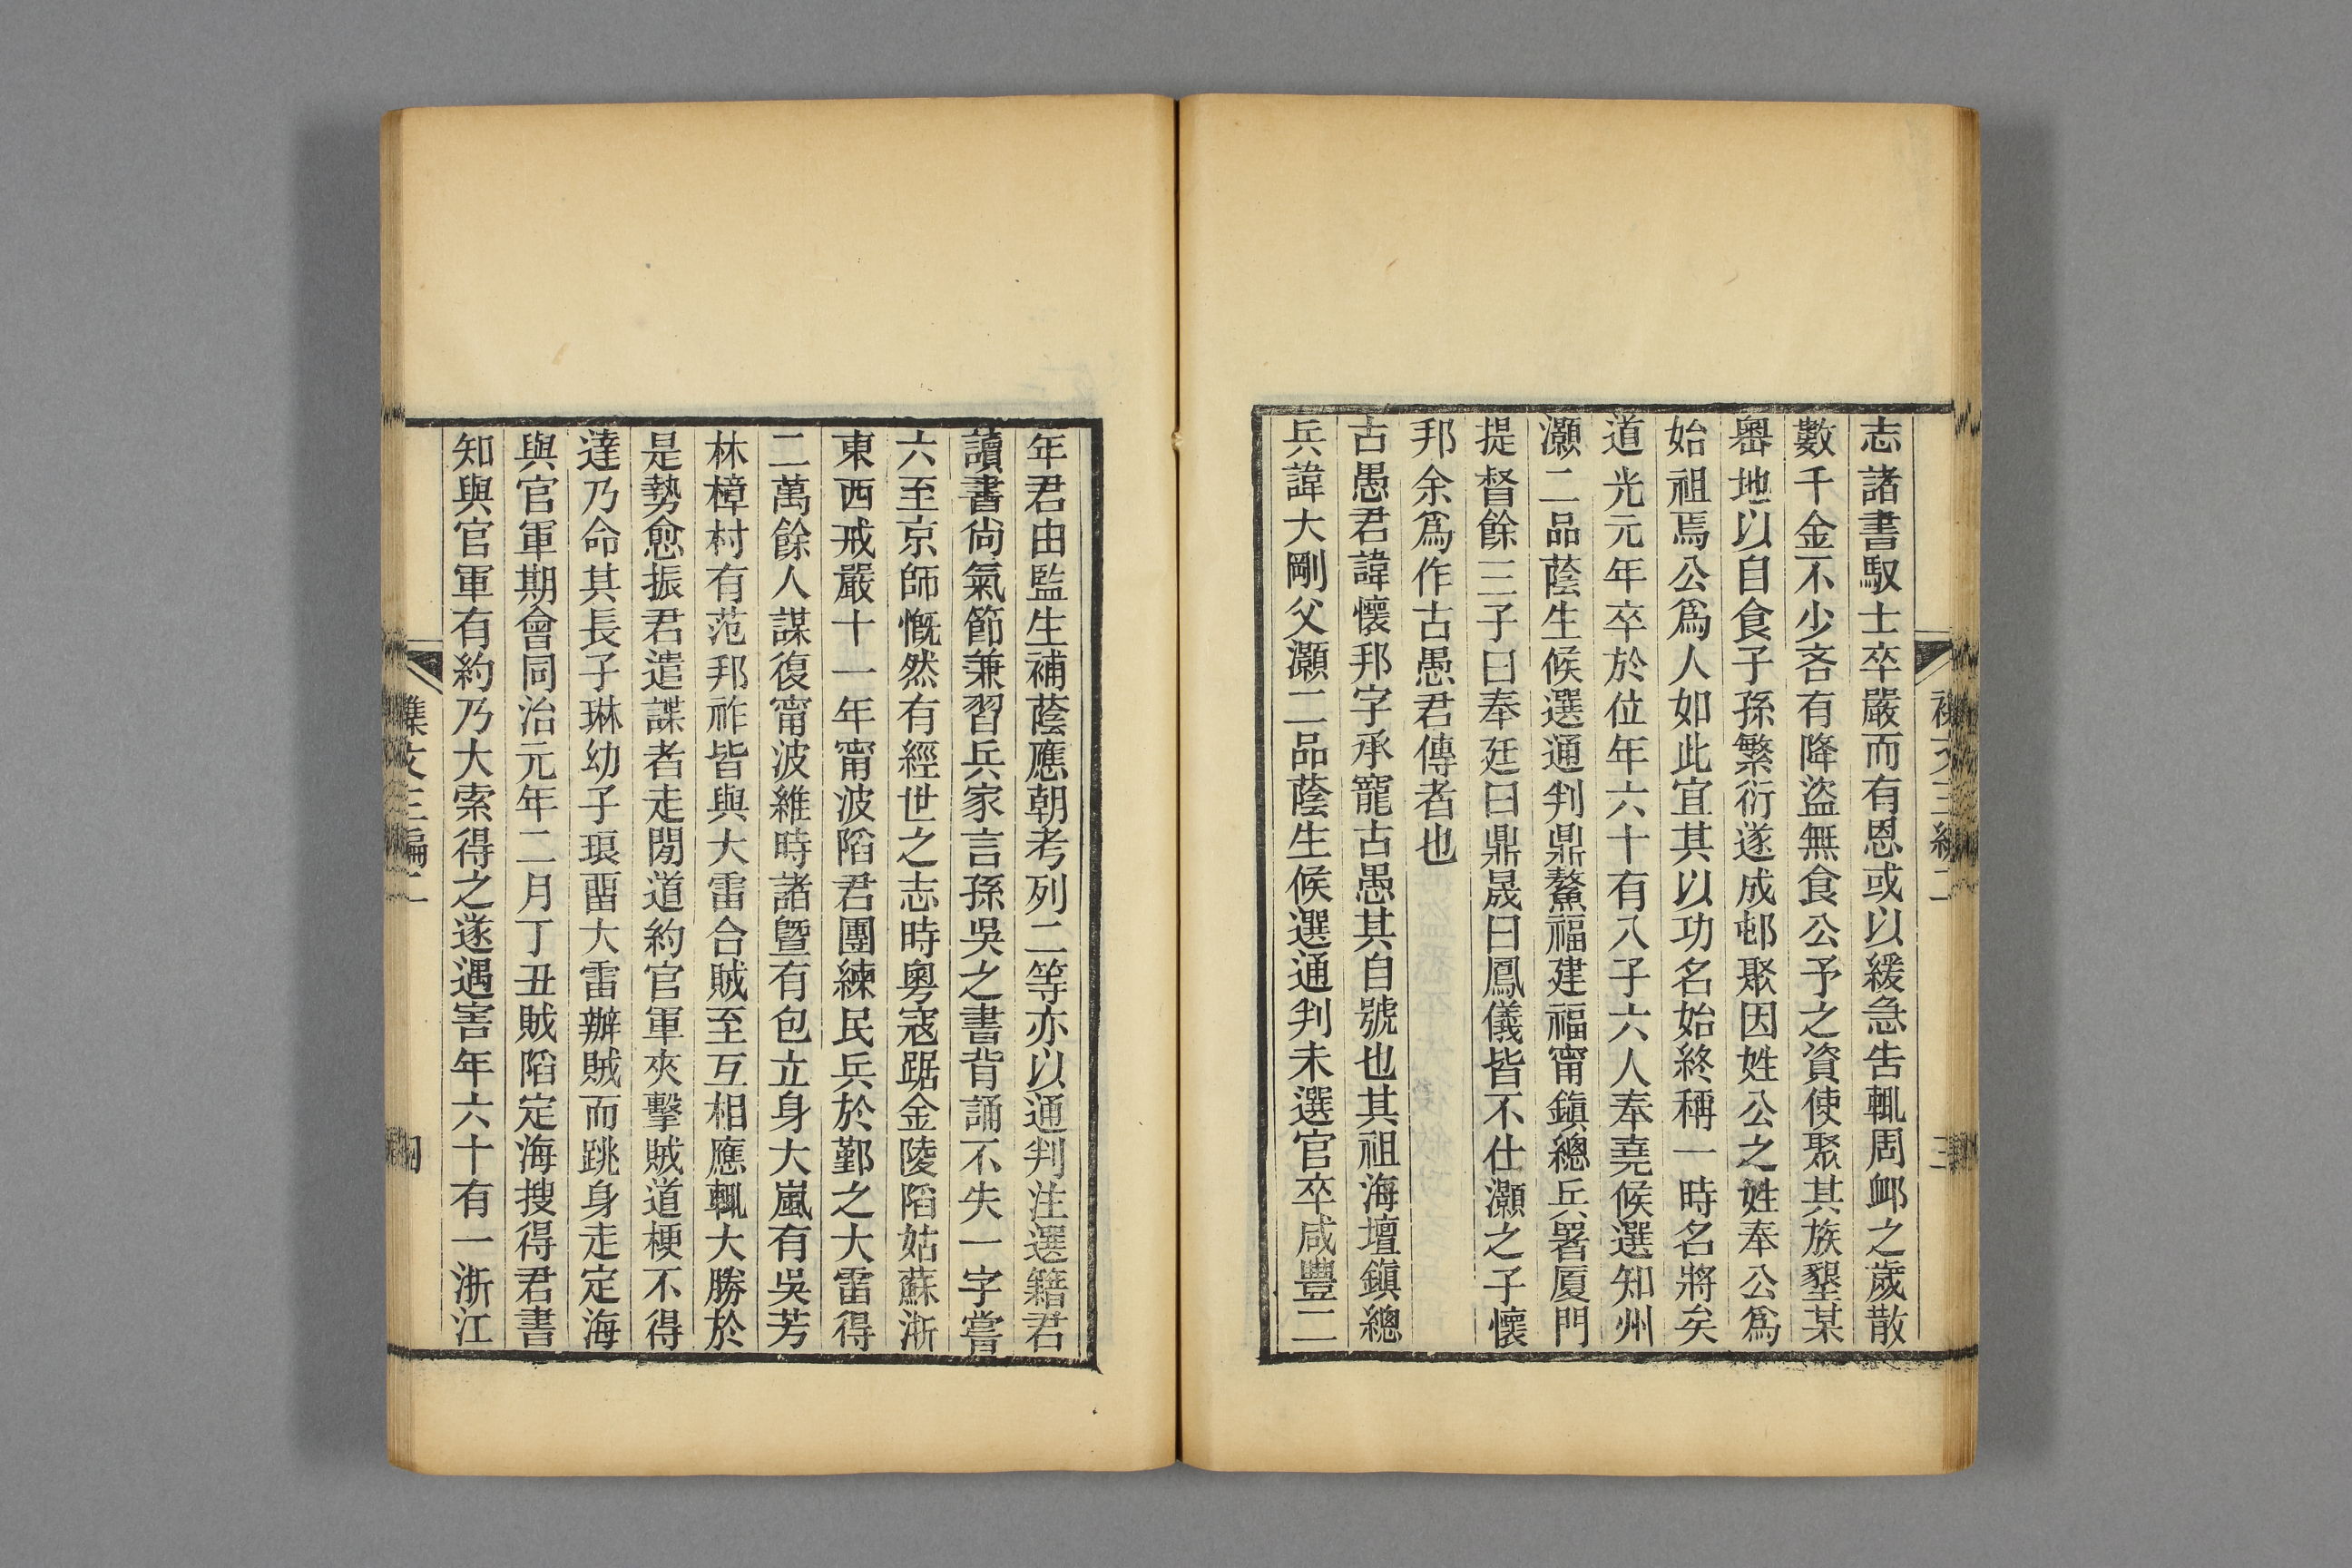 志諸書馭士卒嚴而有恩或以緩急告輒周卹之歲散
數千金不少吝有降盜無食公予之資使聚其族墾某
嶴地以自食子孫繁衍遂成邨聚因姓公之姓奉公爲
始祖焉公爲人如此宜其以功名始終稱一時名將矣
道光元年卒於位年六十有八子六人奉堯候選知州
灝二品蔭生候選通判鼎鰲福建福甯鎭總兵署厦門
提督餘三子曰奉廷曰鼎晟曰鳳儀皆不仕灝之子懷
邦余爲作古愚君傳者也
古愚君諱懷邦字承寵古愚其自號也其祖海壇鎭總
兵諱大剛父灝二品蔭生候選通判未選官卒咸豐二
年君由監生補蔭應朝考列二等亦以通判注選籍君
讀書尙氣節兼習兵家言孫吳之書背誦不失一字嘗
六至京師慨然有經世之志時粵寇踞金陵陷姑蘇浙
東西戒嚴十一年甯波陷君團練民兵於鄞之大雷得
二萬餘人謀復甯波維時諸暨有包立身大嵐有吳芳
林樟村有范邦祚皆與大雷合賊至互相應輒大勝於
是勢愈振君遣諜者走閒道約官軍夾擊賊道梗不得
達乃命其長子琳幼子琅畱大雷辦賊而跳身走定海
與官軍期會同治元年二月丁丑賊陷定海搜得君書
知與官軍有約乃大索得之遂遇害年六十有一浙江
文三編二